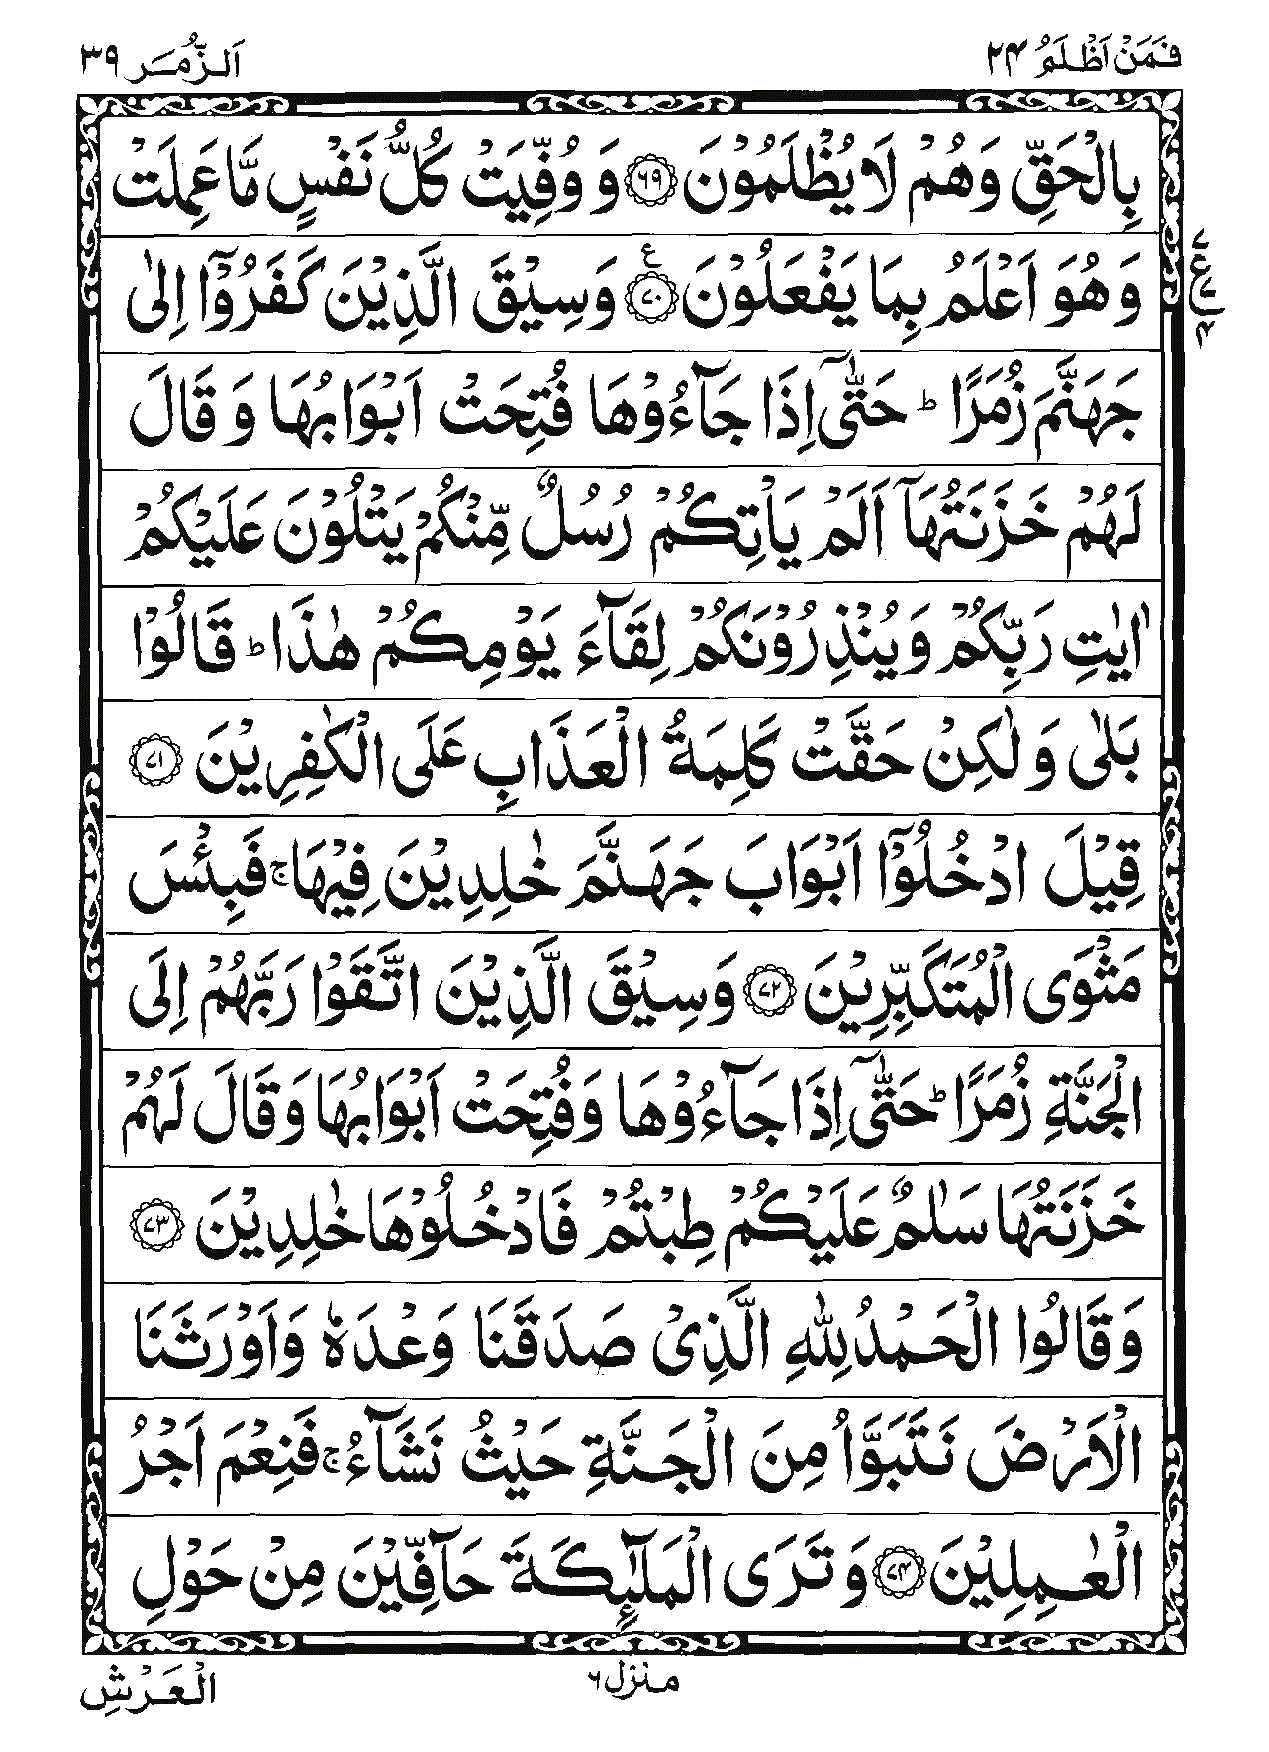 فَمَنْ اَظْلَمُ ٢٤
اَلزُّمَر ٣٩
بِالْحَقِّ وَهُمْ لَا يُظْلَمُوْنَ ﴿۶۹﴾ وَ وُفِّيَتْ كُلُّ نَفْسٍ مَّا عَمِلَتْ
وَ هُوَ اَعْلَمُ بِمَا يَفْعَلُوْنَ ﴿۷۰﴾ ع وَسِيْقَ الَّذِيْنَ كَفَرُوْۤا اِلٰى
جَهَنَّمَ زُمَرًا ؕ حَتّٰۤى اِذَا جَآءُوْهَا فُتِحَتْ اَبْوَابُهَا وَ قَالَ
لَهُمْ خَزَنَتُهَاۤ اَلَمْ يَاْتِكُمْ رُسُلٌ مِّنْكُمْ يَتْلُوْنَ عَلَيْكُمْ
اٰيٰتِ رَبِّكُمْ وَيُنْذِرُوْنَكُمْ لِقَآءَ يَوْمِكُمْ هٰذَا ؕ قَالُوْا
بَلٰى وَ لٰكِنْ حَقَّتْ كَلِمَةُ الْعَذَابِ عَلَى الْكٰفِرِيْنَ ﴿۷۱﴾
قِيْلَ ادْخُلُوْۤا اَبْوَابَ جَهَنَّمَ خٰلِدِيْنَ فِيْهَا ۚ فَبِئْسَ
مَثْوَى الْمُتَكَبِّرِيْنَ ﴿۷۲﴾ وَسِيْقَ الَّذِيْنَ اتَّقَوْا رَبَّهُمْ اِلَى
الْجَنَّةِ زُمَرًا ؕ حَتّٰۤى اِذَا جَآءُوْهَا وَفُتِحَتْ اَبْوَابُهَا وَقَالَ لَهُمْ
خَزَنَتُهَا سَلٰمٌ عَلَيْكُمْ طِبْتُمْ فَادْخُلُوْهَا خٰلِدِيْنَ ﴿۷۳﴾
وَقَالُوا الْحَمْدُ لِلّٰهِ الَّذِىْ صَدَقَنَا وَعْدَهٗ وَاَوْرَثَنَا
الْاَرْضَ نَتَبَوَّاُ مِنَ الْجَنَّةِ حَيْثُ نَشَآءُ ۚ فَنِعْمَ اَجْرُ
الْعٰمِلِيْنَ ﴿۷۴﴾ وَ تَرَى الْمَلٰٓئِكَةَ حَآفِّيْنَ مِنْ حَوْلِ
منزل ۶
الْعَرْشِ